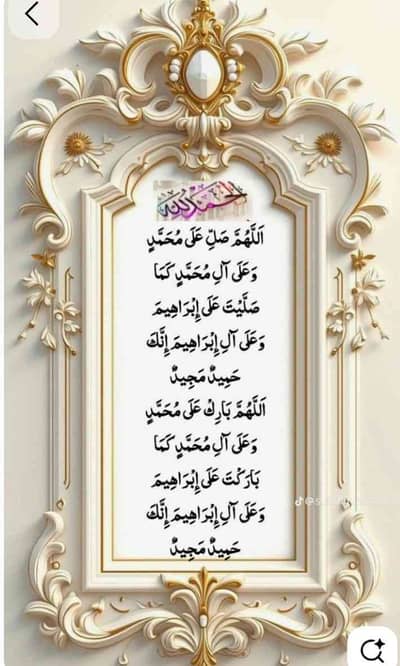 الحمد لله
اَللّٰهُمَّ صَلِّ عَلٰى مُحَمَّدٍ
وَعَلٰى آلِ مُحَمَّدٍ كَمَا
صَلَّيْتَ عَلٰى إِبْرَاهِيمَ
وَعَلٰى آلِ إِبْرَاهِيمَ إِنَّكَ
حَمِيدٌ مَجِيدٌ
اَللّٰهُمَّ بَارِكْ عَلٰى مُحَمَّدٍ
وَعَلٰى آلِ مُحَمَّدٍ كَمَا
بَارَكْتَ عَلٰى إِبْرَاهِيمَ
وَعَلٰى آلِ إِبْرَاهِيمَ إِنَّكَ
حَمِيدٌ مَجِيدٌ